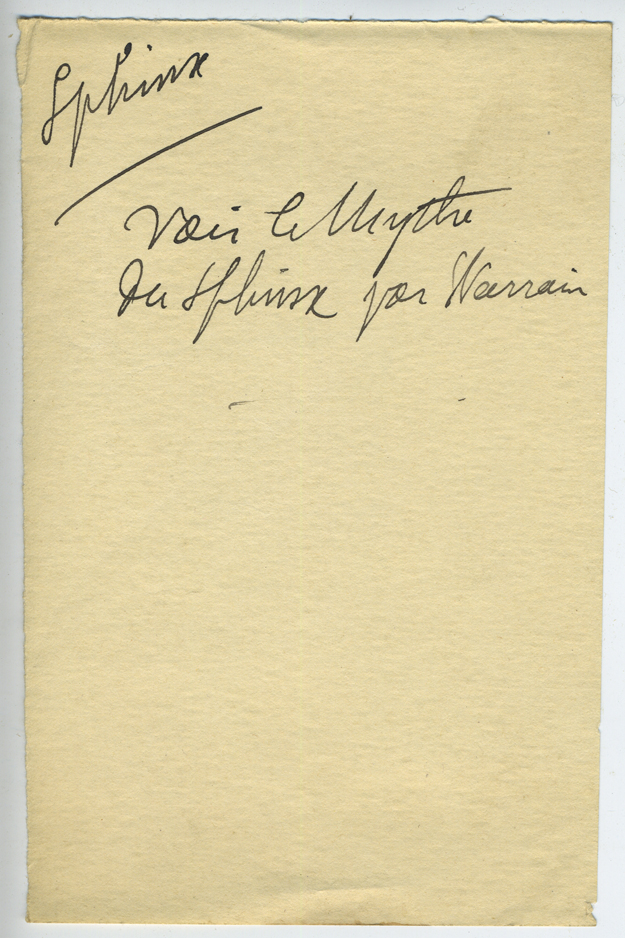 Sphinx
Voir le Mythe
du Sphinx par Warrain